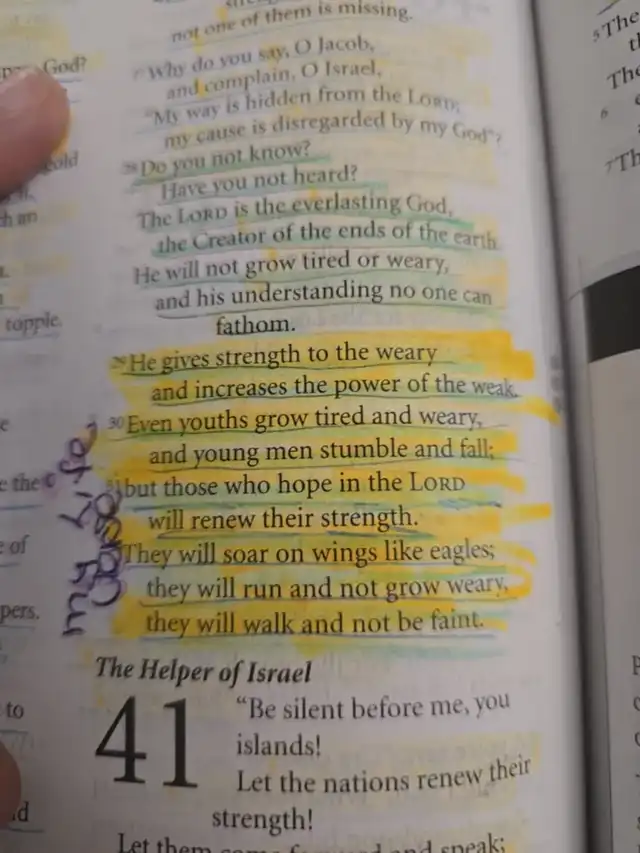 not one of them is missing.
27 Why do you say, O Jacob,
and complain, O Israel,
"My way is hidden from the LORD;
my cause is disregarded by my God"?
28 Do you not know?
Have you not heard?
The LORD is the everlasting God,
the Creator of the ends of the earth.
He will not grow tired or weary,
and his understanding no one can
fathom.
29 He gives strength to the weary
and increases the power of the weak.
30 Even youths grow tired and weary,
and young men stumble and fall;
31 but those who hope in the LORD
will renew their strength.
They will soar on wings like eagles;
they will run and not grow weary,
they will walk and not be faint.
my life
verse
The Helper of Israel
41 "Be silent before me, you
islands!
Let the nations renew their
strength!
Let them come forward and speak;
God?
topple.
of
pers.
to
5 The
The
6
7 Th